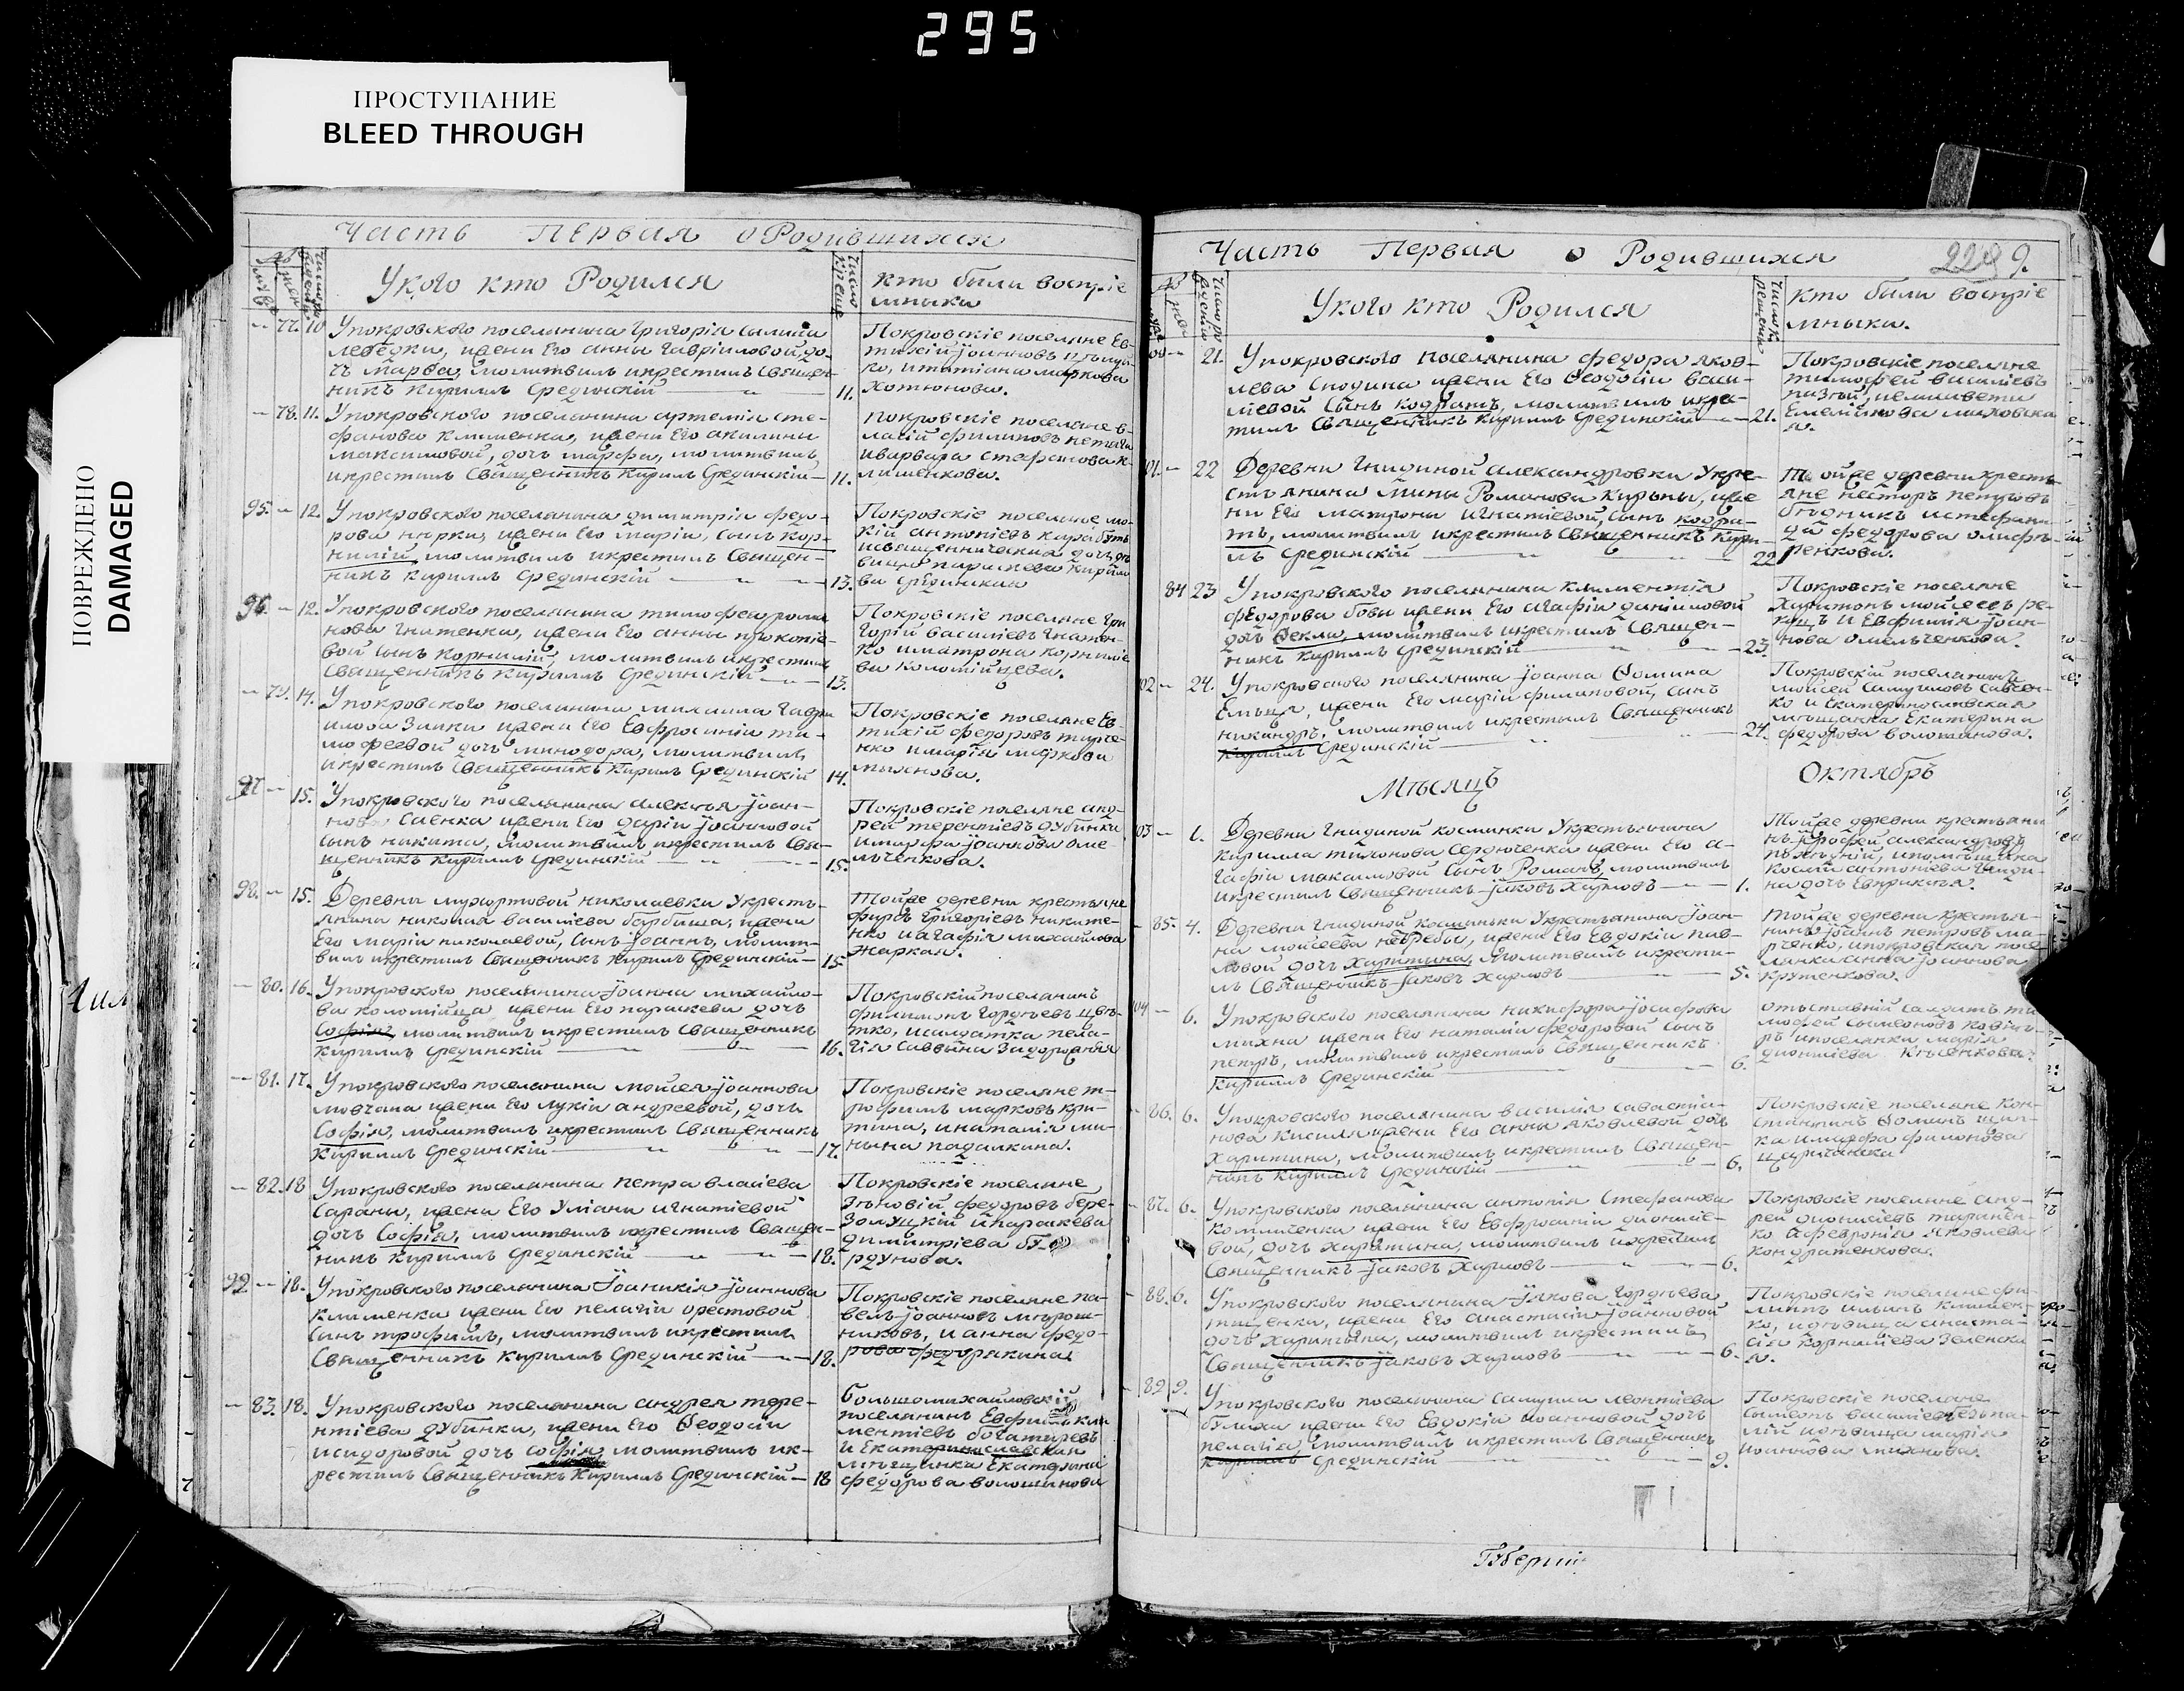 295
ПРОСТУПАНИЕ
BLEED THROUGH
ПОВРЕЖДЕНО
DAMAGED
Часть Первая о Родившихся
Укого кто Родился
Кто были воспріе
мники
77. 10 Упокровского поселянина григорія
лебедки, ижени его анны гавріиловой, до-
чъ марва, молитвилъ икрестилъ Священ-
никъ Кирилъ Срединскій 11.
Покровскіе поселяне Ев-
тихій іоанновъ
ко, итатіана маркова
Хотюнова.
78. 11. Упокровского поселянина артемія сте-
фанова клименка, ижени его акилины
максимовой, дочъ марфа, молитвилъ
икрестилъ Священникъ Кирилъ Срединскій 11.
покровскіе поселяне в-
ласій филиповъ нетяга
иварвара стефанова к-
лименкова.
95. 12. Упокровского поселянина димитрія федо-
рова нырки, ижени его маріи, сынъ кор-
нилій, молитвилъ икрестилъ Священ-
никъ Кирилъ Срединскій 13.
Покровскіе поселяне мо-
кій антоніевъ карабутъ
исвященническая дочъ дѣ-
вица параскева кирило-
ва Срединская
96. 12. Упокровского поселянина тимофея рома
нова гнитенка, ижени его анны прокопіе-
вой сынъ Корнилій, молитвилъ икрестилъ
Священникъ Кирилъ Срединскій 13.
Покровскіе поселяне гри
горій василіевъ гнатен-
ко иматрона корниліе
ва коломійцева.
79. 14. Упокровского поселянина михаила гаври
илова Заики ижени его Евфросиніи ти-
мофеевой дочъ минодора, молитвилъ
икрестилъ Священникъ Кирилъ Срединскій 14.
Покровскіе поселяне Ев-
тихій федоровъ
нко имарія маркова
97 15. Упокровского поселянина алексѣя іоан-
нова Саенка ижени его даріи іоанновой
сынъ никита, молитвилъ икрестилъ Свя-
щенникъ Кирилъ Срединскій 15.
Покровскіе поселяне анд-
рей терентіевъ дубинка
имарфа іоаннова оме-
льченкова.
98. 15. Деревни николаевки Укресть-
янина николая василіева барбаша, ижени
его маріи николаевой, сынъ іоаннъ, молит-
вилъ икрестилъ Священникъ Кирилъ Срединскій 15
Тойже деревни крестьяне
фирсъ григоріевъ никите-
нко иагафія михайлова
жаркая.
80. 16. Упокровского поселянина іоанна михайло-
ва коломійца, ижени его параскева дочъ
Софія, молитвилъ икрестилъ Священникъ
Кирилъ Срединскій 16.
Покровскій поселянинъ
филимонъ гордѣевъ цвѣ-
тко, исалдатка пела-
гія саввина Задорожняя
81. 17. Упокровского поселянина мойсея іоаннова
мовчана ижени его лукіи андреевой, дочъ
Софія, молитвилъ икрестилъ Священникъ
Кирилъ Срединскій 17.
Покровскіе поселяне т-
рофимъ марковъ кри-
тина, инаталія ми-
нина падалкина.
82. 18 Упокровского поселянина петра власіева
Сараны, ижени его Уліани игнатіевой
дочъ Софія, молитвилъ икрестилъ Священ-
никъ Кирилъ Срединскій 18.
Покровскіе поселяне
Зѣновій федоровъ бере-
золуцкій ипараскева
димитріева бу-
рдунова.
99 18. Упокровского поселянина іоаникія іоаннова
клименка ижени его пелагіи орестовой
сынъ трофимъ, молитвилъ икрестилъ
Священникъ Кирилъ Срединскій 18.
Покровскіе поселяне па-
велъ іоанновъ мѣрош-
никовъ, и анна федо-
рова федорякина
83. 18. Упокровского поселянина андрея тере-
нтіева дубинки, ижени его Ѳеодосіи
исидоровой дочъ софія молитвилъ ик-
рестилъ Священникъ Кирилъ Срединскій 18
большомихайловскій
поселянинъ Евфимъ кли
ментіевъ богатыревъ
и Екатеринославская
мѣщанка Екатерина
федорова волошинова
Часть Первая о Родившихся
Укого кто Родился
Кто были воспріе
мныки.
21. Упокровского поселянина федора яков-
лева ижени его Ѳеодосіи васи-
ліевой сынъ кодратъ, молитвилъ икре-
тилъ Священникъ Кирилъ Срединскій 21.
Покровскіе поселяне
тимофей василіевъ
22 Деревни гнидиной александровки Укре-
стьянина мины Романова Кирьны, иже
ни его матроны игнатіевой, сынъ кодра-
тъ, молитвилъ икрестилъ Священникъ Кири-
лъ Срединскій 22
Тойже деревни кресть
яне несторъ петровъ
бѣдникъ истефани
да федорова
84 23 Упокровского поселянина климентія
федорова бовы ижени его агафіи даніиловой
дочъ Ѳекла, молитвилъ икрестилъ Священ-
никъ Кирилъ Срединскій 23.
Покровскіе поселяне
Харитонъ мойсеевъ
и Евфимія іоан-
нова омельченкова.
24. Упокровского поселянина іоанна Ѳомина
Емьца, ижени его маріи филиповой, сынъ
никандръ, молитвилъ икрестилъ Священникъ
Кирилъ Срединскій 24.
Покровскій поселянинъ
мойсей Самуиловъ Савчен-
ко и Екатеринославская
мѣщанка Екатерина
федорова волошинова.
Мѣсяцъ Октябръ
1. Деревни гнидиной косминки Укрестьянина
Кирилла тихонова Сердюченка ижени его а-
гафіи максимовой сынъ Романъ, молитвилъ
икрестилъ Священникъ іаковъ Харловъ 1.
Тойже деревни крестьяни
нъ александровъ
на дочъ Евпраксія.
85. 4. Деревни гнидиной косминки Укрестьянина іоан-
на мойсеева негребы, ижени его Евдокіи пав-
ловой дочъ Харитина, молитвилъ икрести-
лъ Священникъ іаковъ Харловъ 5.
Тойже деревни крестья-
нинъ іоаннъ петровъ ма-
рченко, ипокровская посе
лянка анна іоаннова
крутенкова.
6. Упокровского поселянина никифора іосифова
михна ижени его наталіи федоровой сынъ
петръ, молитвилъ икрестилъ Священникъ
Кирилъ Срединскій 6.
отъставній салдатъ ти
мофей сымеоновъ
ръ ипоселянка марія
86. 6. Упокровского поселянина василія савастія-
нова Кисиля ижени его анны яковлевой дочъ
Харитина, молитвилъ икрестилъ Священ-
никъ Кирилъ Срединскій 6.
Покровскіе поселяне кон-
стантинъ Ѳоминъ
ка имарфа филонова
87. 6. Упокровского поселянина антонія Стефанова
ижени его Евфросиніи діонисіе-
вой, дочъ Харитина, молитвилъ икрестилъ
Священникъ іаковъ Харловъ 6.
Покровскіе поселяне анд-
рей діонисіевъ таранен-
ко афевронія яковлева
кондратенкова.
88. 6. Упокровского поселянина іякова гордѣева
тищенки, ижени его анастасіи іоанновой
дочъ Харитина, молитвилъ икрестилъ
Священникъ іаковъ Харловъ 6.
Покровскіе поселяне фи-
липъ ильинъ климен-
ко, идѣвица анаста-
сія корниліева Зеленска
я.
89 9. Упокровского поселянина Самуила леонтіева
ижени его Евдокіи іоанновой дочъ
пелагія, молитвилъ икрестилъ Священникъ
Кирилъ Срединскій 9.
Покровскіе поселяне
Сымеонъ василіевъ
лій идѣвица марія
іоаннова михнова.
Губерніи